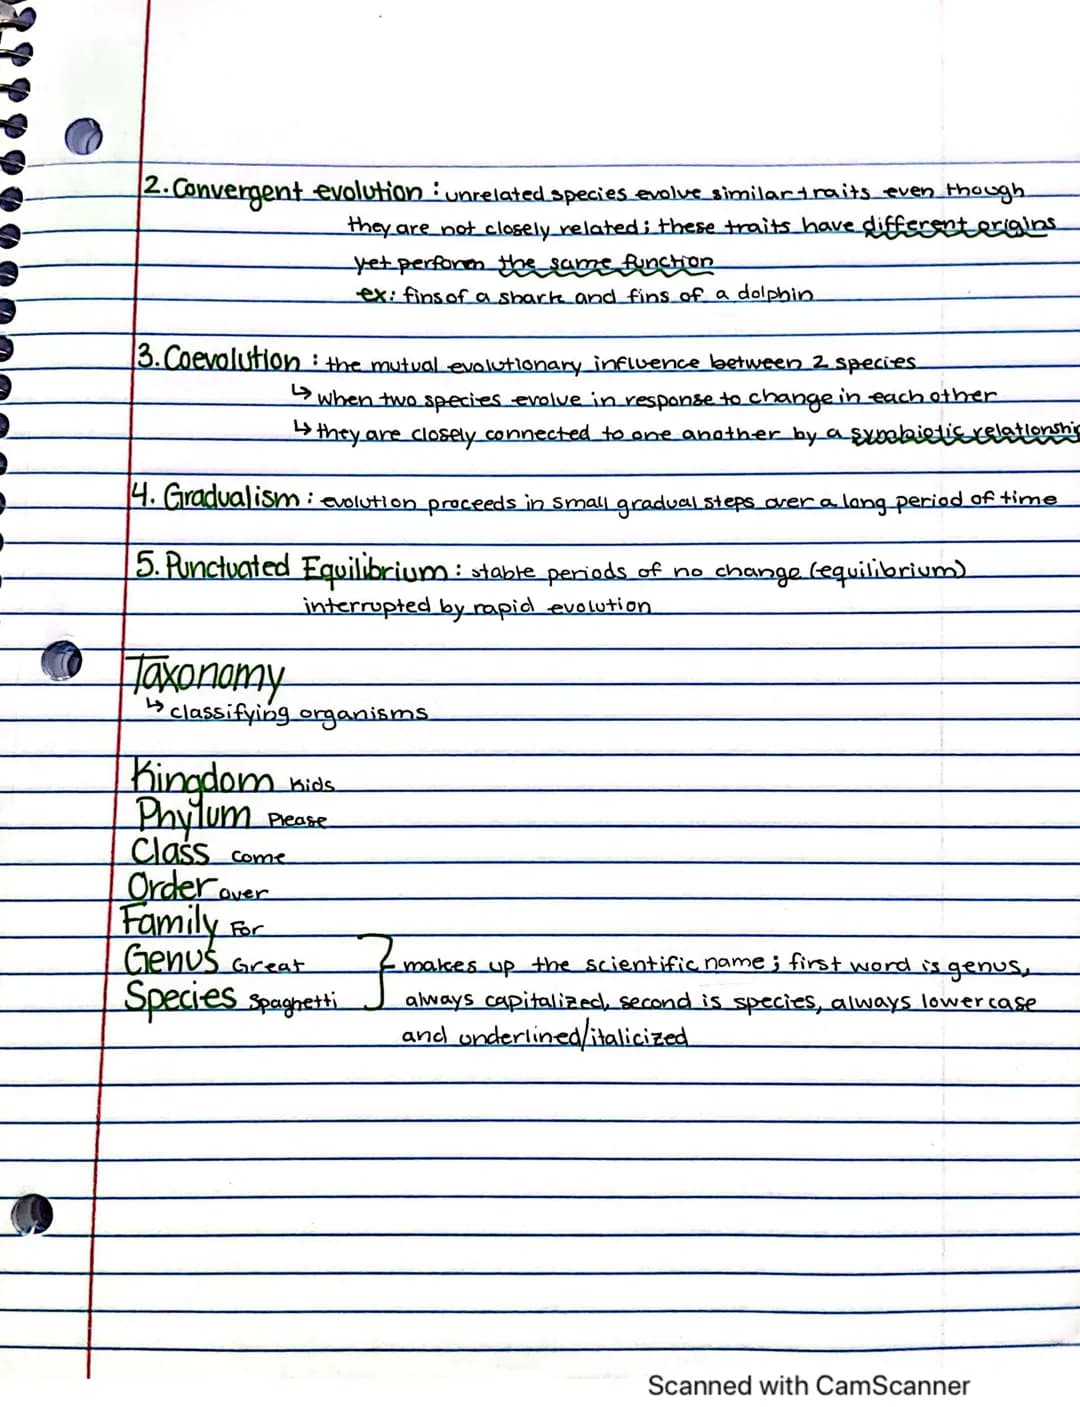 2. Convergent evolution : unrelated species evolve similar traits even though
they are not closely related; these traits have different origins
yet perform the same function
ex: fins of a shark and fins of a dolphin
3. Coevolution : the mutual evolutionary influence between 2 species
↳ when two species evolve in response to change in each other
↳ they are closely connected to one another by a symbiotic relationship
4. Gradualism : evolution proceeds in small gradual steps over a long period of time
5. Punctuated Equilibrium : stable periods of no change (equilibrium)
interrupted by rapid evolution
Taxonomy
↳ classifying organisms
Kingdom Kids
Phylum Please
Class Come
Order over
Family For
Genus Great } makes up the scientific name; first word is genus,
Species Spaghetti always capitalized, second is species, always lowercase
and underlined/italicized
Scanned with CamScanner